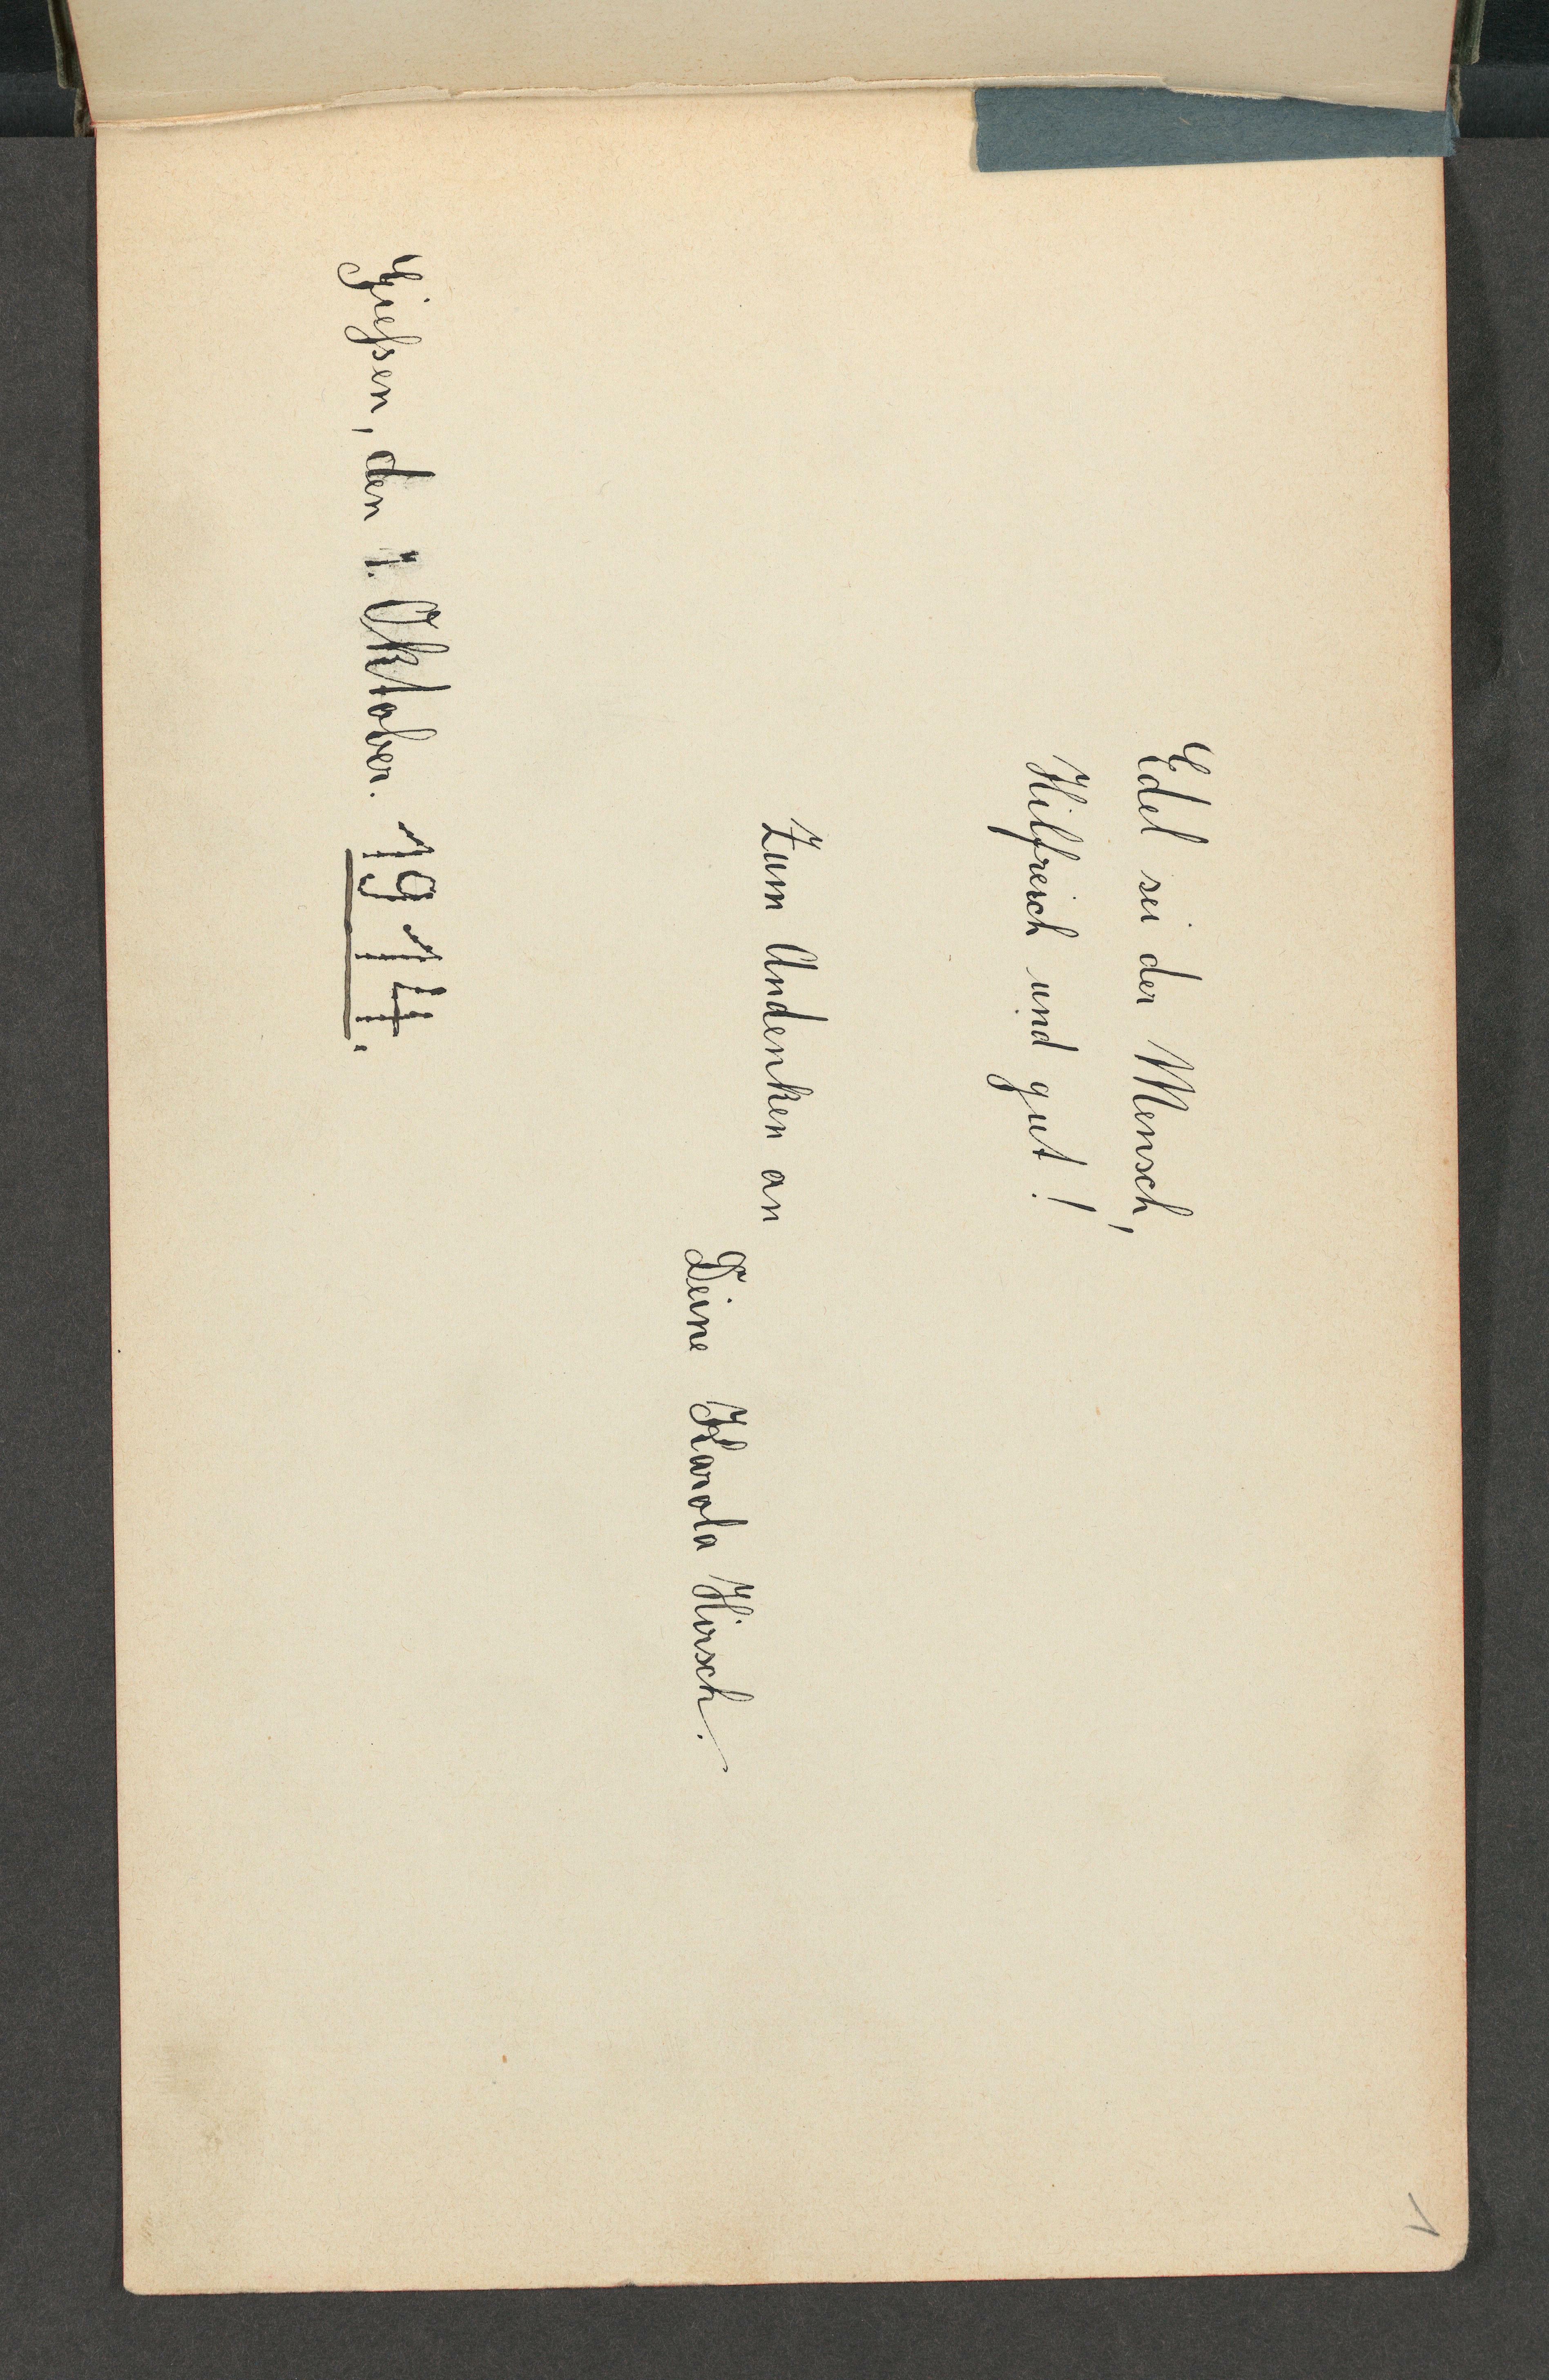 1
Edel sei der Mensch,
Hilfreich und gut!
Zum Andenken an
Deine Karola Hirsch.
Gießen, den 1. Oktober. 1914.